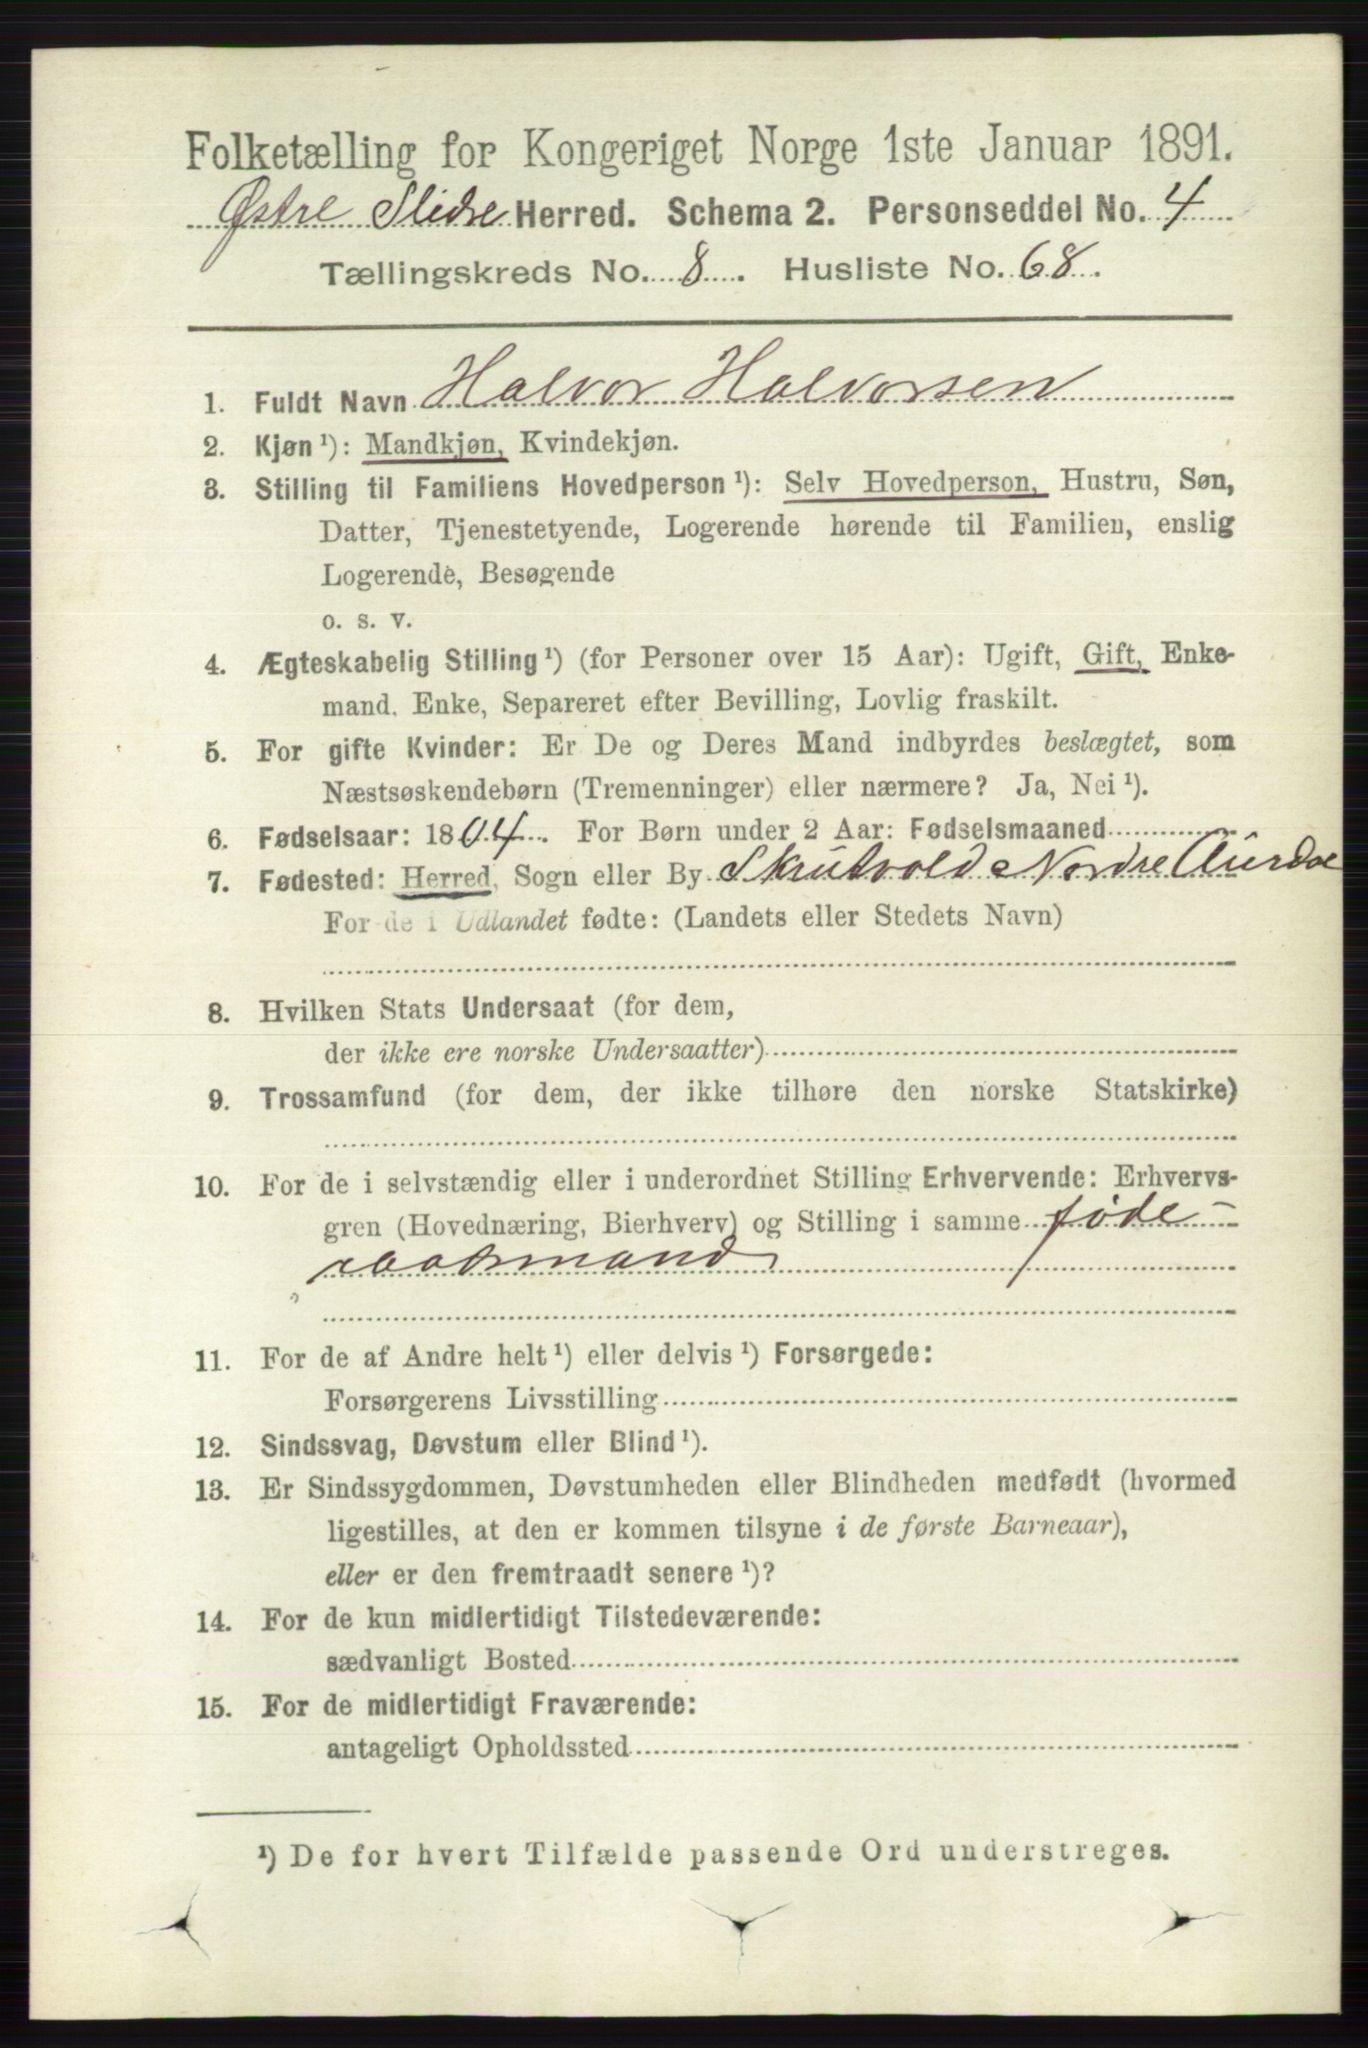 Folketælling for Kongeriget Norge 1ste Januar 1891.
Østre Slidre Herred. Schema 2. Personseddel No. 4
Tællingskreds No. 8. Husliste No. 68.
1. Fuldt Navn Halvor Halvorsen
2. Kjøn ¹): Mandkjøn, Kvindekjøn.
3. Stilling til Familiens Hovedperson ¹): Selv Hovedperson, Hustru, Søn,
Datter, Tjenestetyende, Logerende hørende til Familien, enslig
Logerende, Besøgende
o. s. v.
4. Ægteskabelig Stilling ¹) (for Personer over 15 Aar): Ugift, Gift, Enke-
mand, Enke, Separeret efter Bevilling, Lovlig fraskilt.
5. For gifte Kvinder: Er De og Deres Mand indbyrdes beslægtet, som
Næstsøskendebørn (Tremenninger) eller nærmere? Ja, Nei ¹).
6. Fødselsaar: 1804. For Børn under 2 Aar: Fødselsmaaned
7. Fødested: Herred, Sogn eller By Skrutvold Nordre Aurdal
For de i Udlandet fødte: (Landets eller Stedets Navn)
8. Hvilken Stats Undersaat (for dem,
der ikke ere norske Undersaatter)
9. Trossamfund (for dem, der ikke tilhøre den norske Statskirke)
10. For de i selvstændig eller i underordnet Stilling Erhvervende: Erhvervs-
gren (Hovednæring, Bierhverv) og Stilling i samme føde-
raadsmand
11. For de af Andre helt ¹) eller delvis ¹) Forsørgede:
Forsørgerens Livsstilling
12. Sindssvag, Døvstum eller Blind ¹).
13. Er Sindssygdommen, Døvstumheden eller Blindheden medfødt (hvormed
ligestilles, at den er kommen tilsyne i de første Barneaar),
eller er den fremtraadt senere ¹)?
14. For de kun midlertidigt Tilstedeværende:
sædvanligt Bosted
15. For de midlertidigt Fraværende:
antageligt Opholdssted
¹) De for hvert Tilfælde passende Ord understreges.